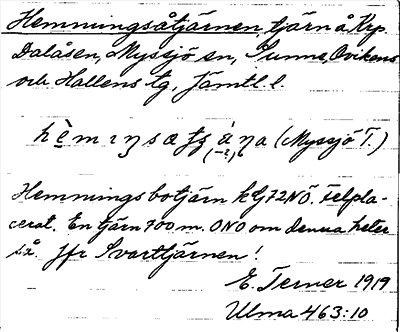 Hemningsåtjärnen, tjärn å Krp.
Dalåsen, Myssjö sn, Sunne, Ovikens
och Hallens tg, Jämtl. l.
(Myssjö T.)
Hemningsbotjärn kG72NÖ. Felpla-
cerat. En tjärn 700 m. ONO om denna heter
så. Jfr Svarttjärnen!
E. Terner 1919
Ulma 463:10